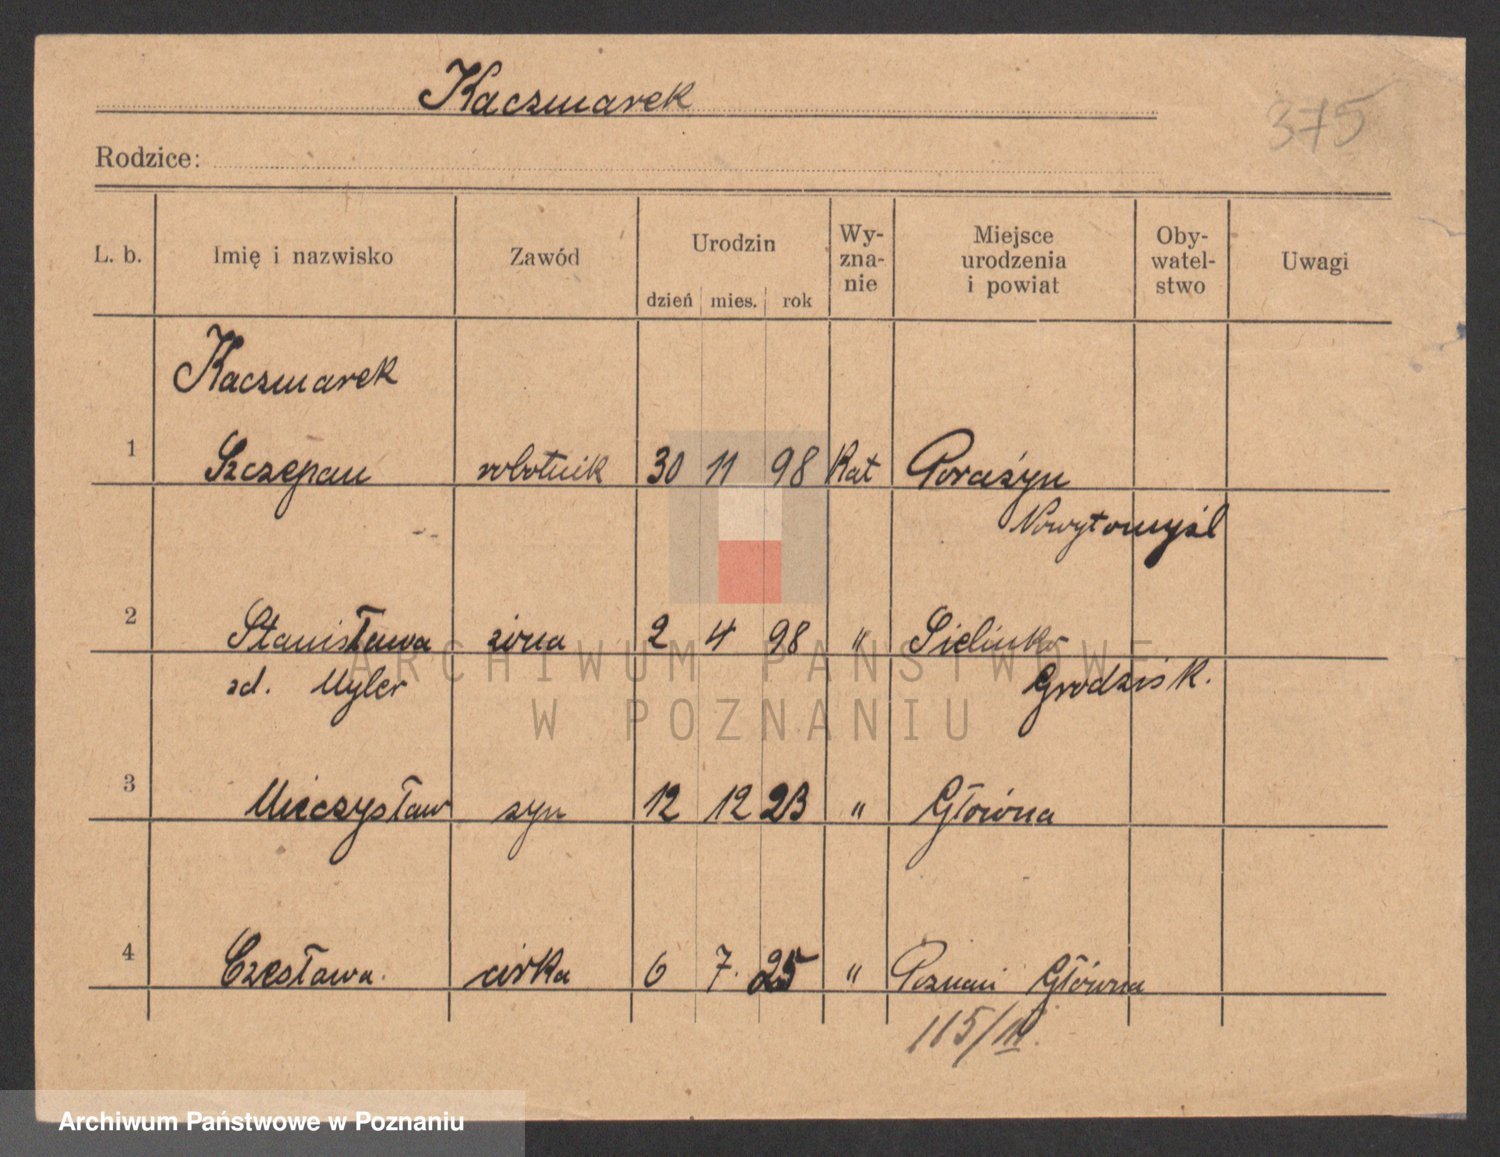 Kaczmarek
375
Rodzice:
L. b. Imię i nazwisko Zawód Urodzin dzień mies. rok Wy-zna-nie Miejsce urodzenia i powiat Oby-watel-stwo Uwagi
Kaczmarek
1 Szczepan robotnik 30 11 98 Kat Porażyn
Nowytomyśl
2 Stanisława żona 2 4 98 " Sielinko
zd. Myler Grodzisk.
3 Mieczysław syn 12 12 23 " Główna
4 Czesława. córka 6 7. 25 " Poznań Główna
115/III.
ARCHIWUM PAŃSTWOWE
W POZNANIU
Archiwum Państwowe w Poznaniu